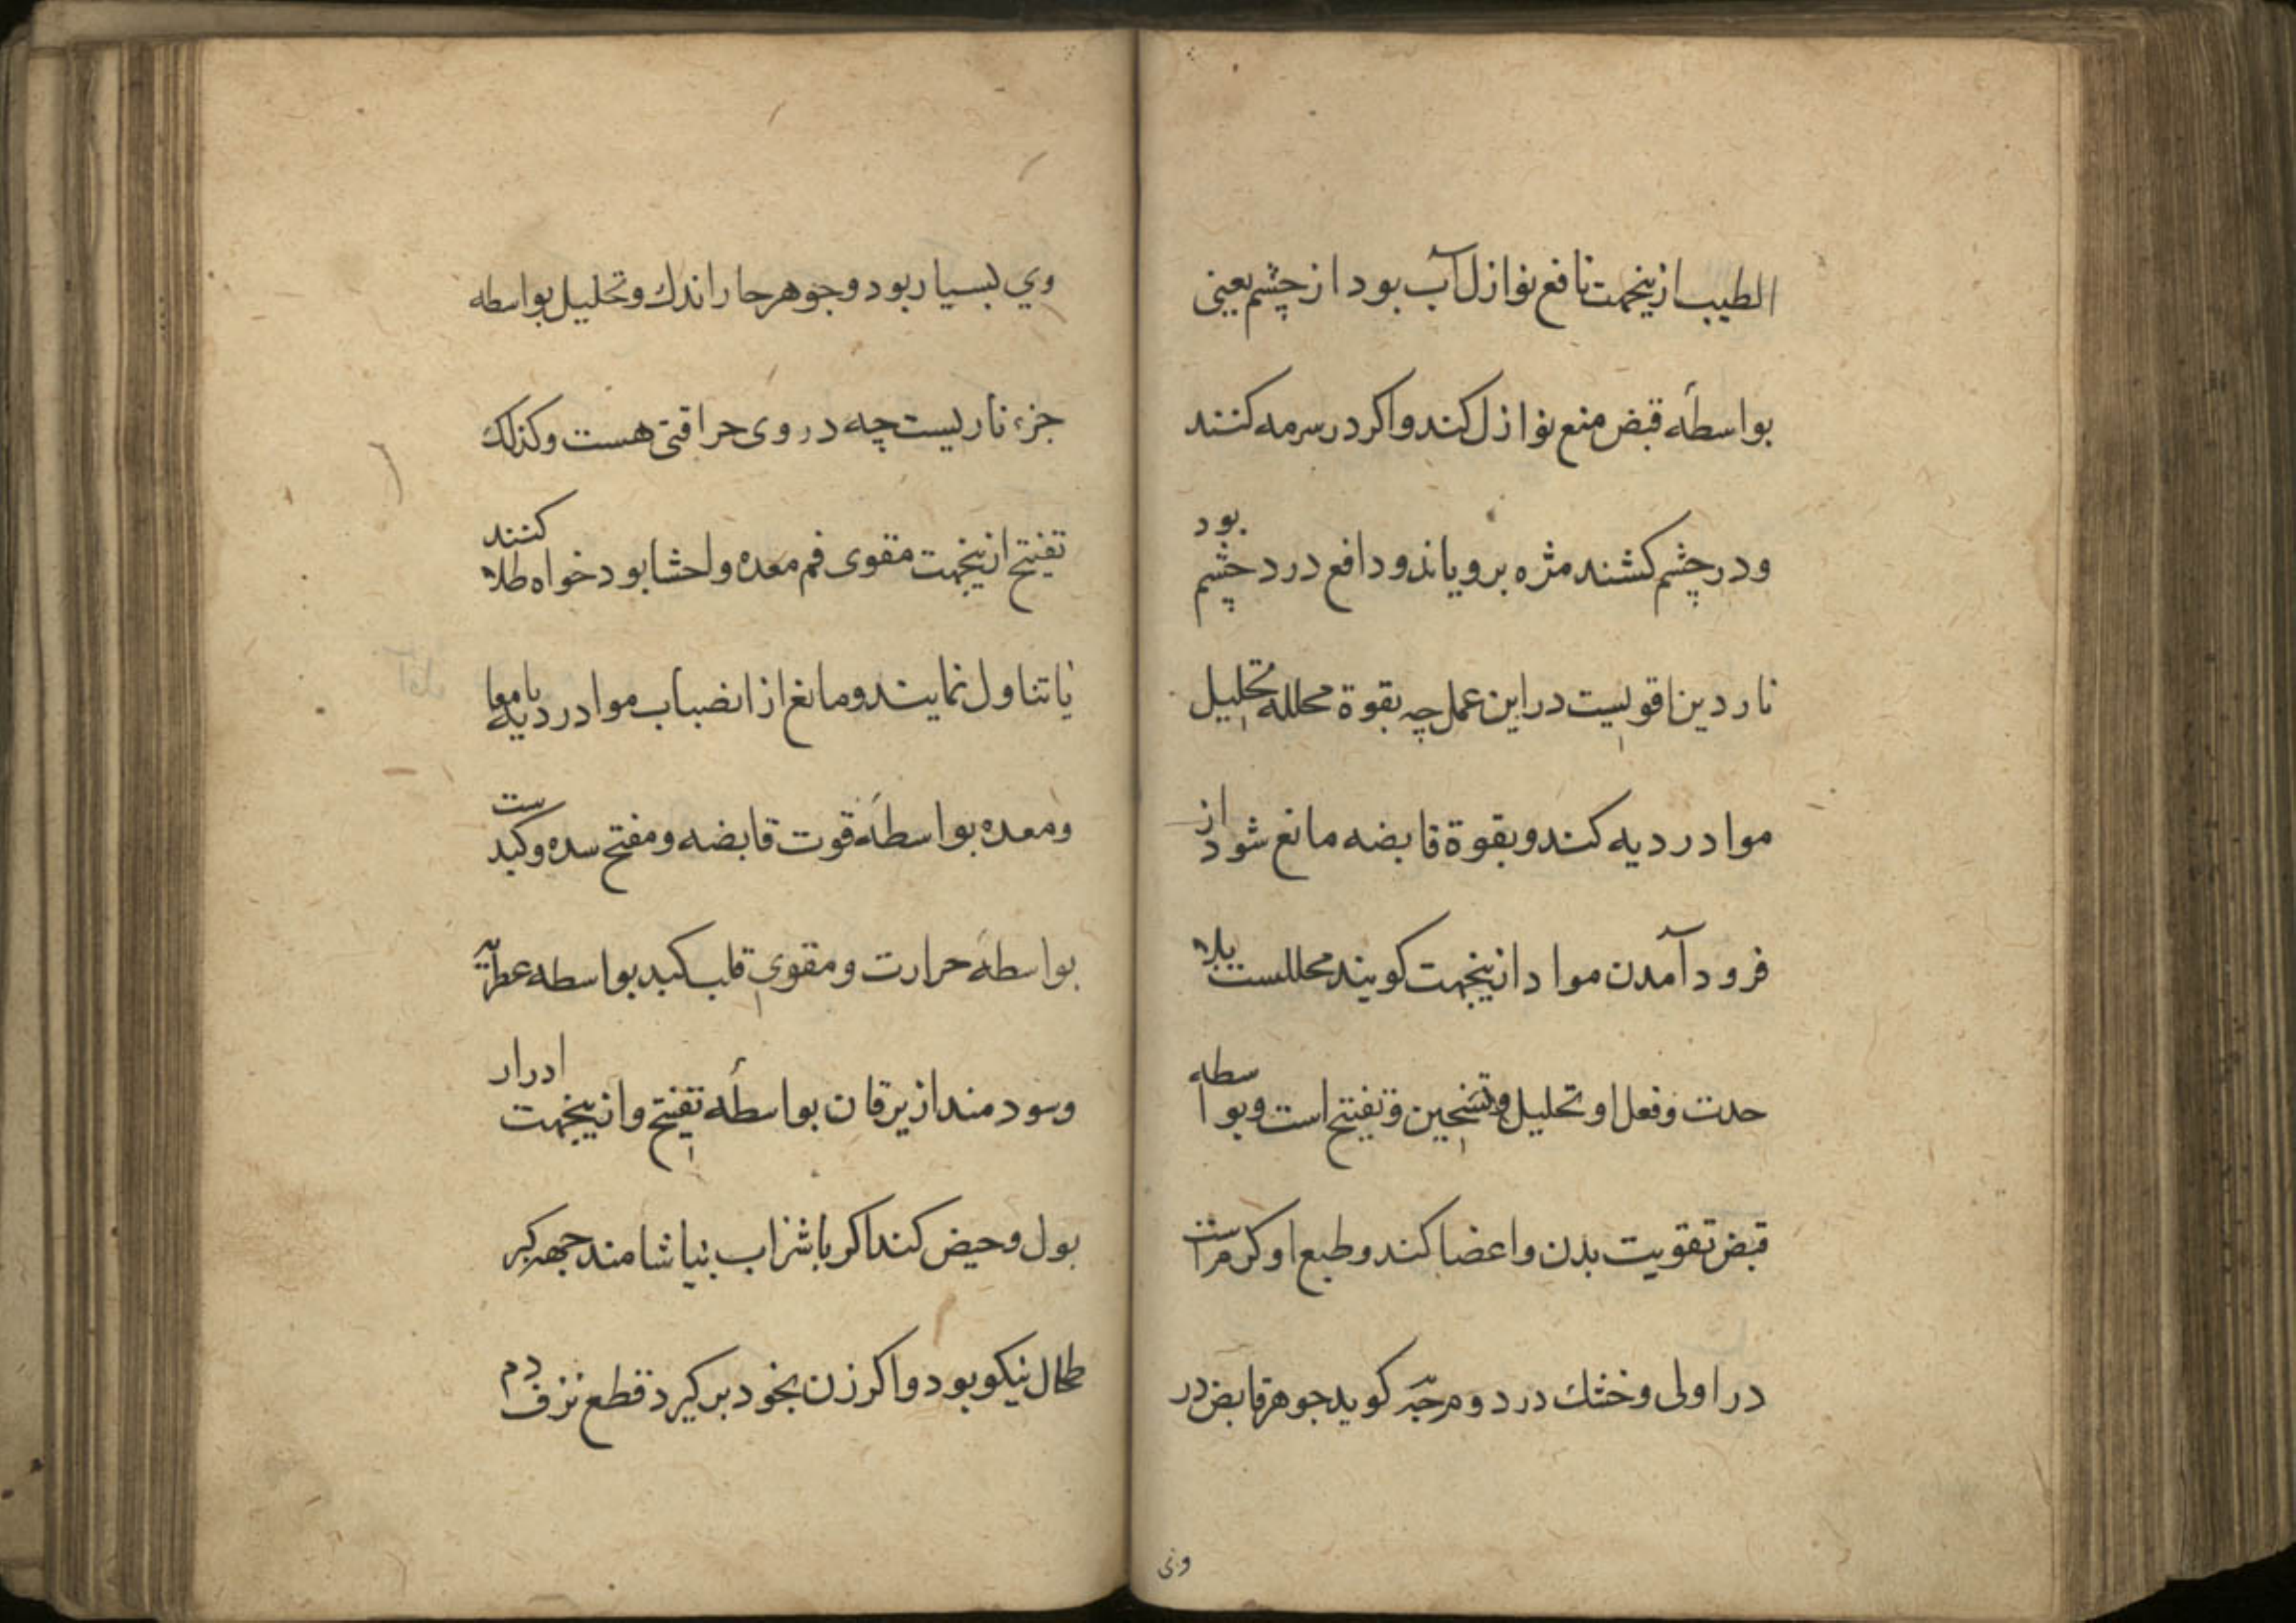 الطیب ازینجهت نافع نوازل آب بود از چشم یعنی
بواسطهٔ قبض منع نوازل کند واکر در سرمه کنند
ودر چشم کشند مژه برویاند ودافع درد چشم بود
ناردین اقویست در این عمل چه بقوة محلله تحلیل
مواد ردیه کند وبقوة قابضه مانع شود از
فرود آمدن مواد ازینجهت کویند محللست بلا
حدت وفعل او تحلیل وتسخین وتفتیح است وبواسطه
قبض تقویت بدن واعضا کند وطبع او کرم است
در اولی وخشك در دوم کوید جوهر قابض در
وی
وي بسیار بود وجوهر حار اندك وتحلیل بواسطه
جزء ناریست چه در وی حراقتی هست وکذلك
تفتیح ازینجهت مقوی فم معده واحشا بود خواه طلا کنند
یا تناول نمایند ومانع از انضباب مواد ردیه بامعا
ومعده بواسطهٔ قوت قابضه ومفتح سده وکبد ست
بواسطهٔ حرارت ومقوي قلب کبد بواسطه عطریة
وسودمند از یرقان بواسطهٔ تفتیح وازینجهت ادرار
بول وحیض کند اکر باشراب بیاشامند جهة کبر
طحال نیکو بود واکر زن بخود برکیرد قطع نزف دم